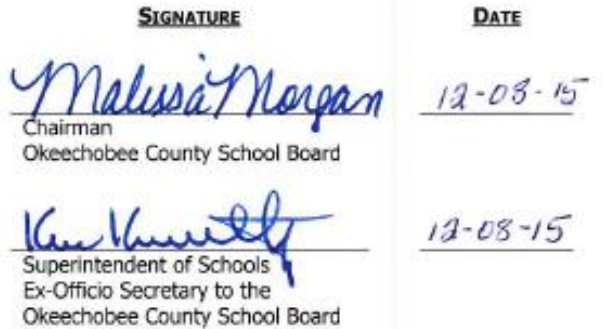 SIGNATURE DATE
Malissa Morgan 12-08-15
Chairman
Okeechobee County School Board
Ken Kenworthy 12-08-15
Superintendent of Schools
Ex-Officio Secretary to the
Okeechobee County School Board